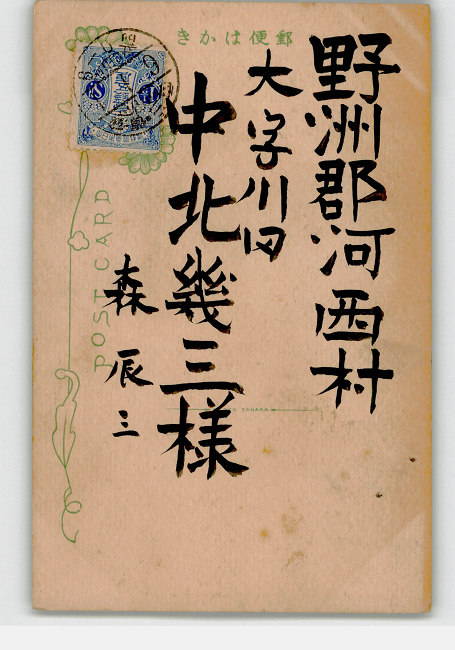 きかは便郵
野洲郡河西村
大字川田
中北幾三様
森辰三
POST CARD
TANAKA